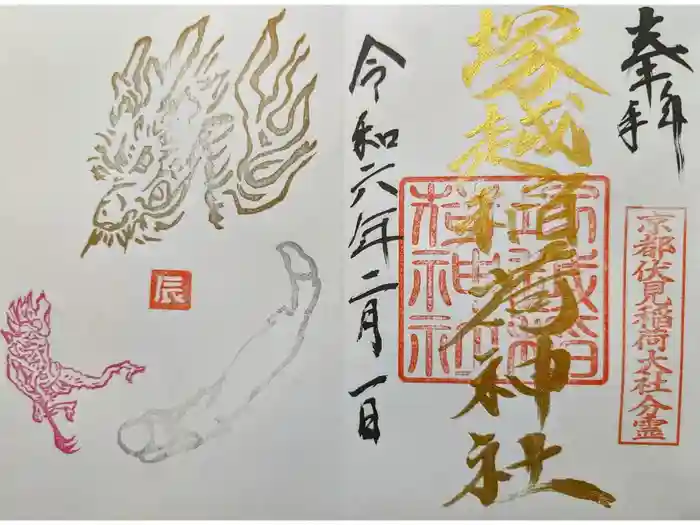 奉拝
京都伏見稲荷大社分霊
塚越稲荷神社
令和六年二月一日
辰